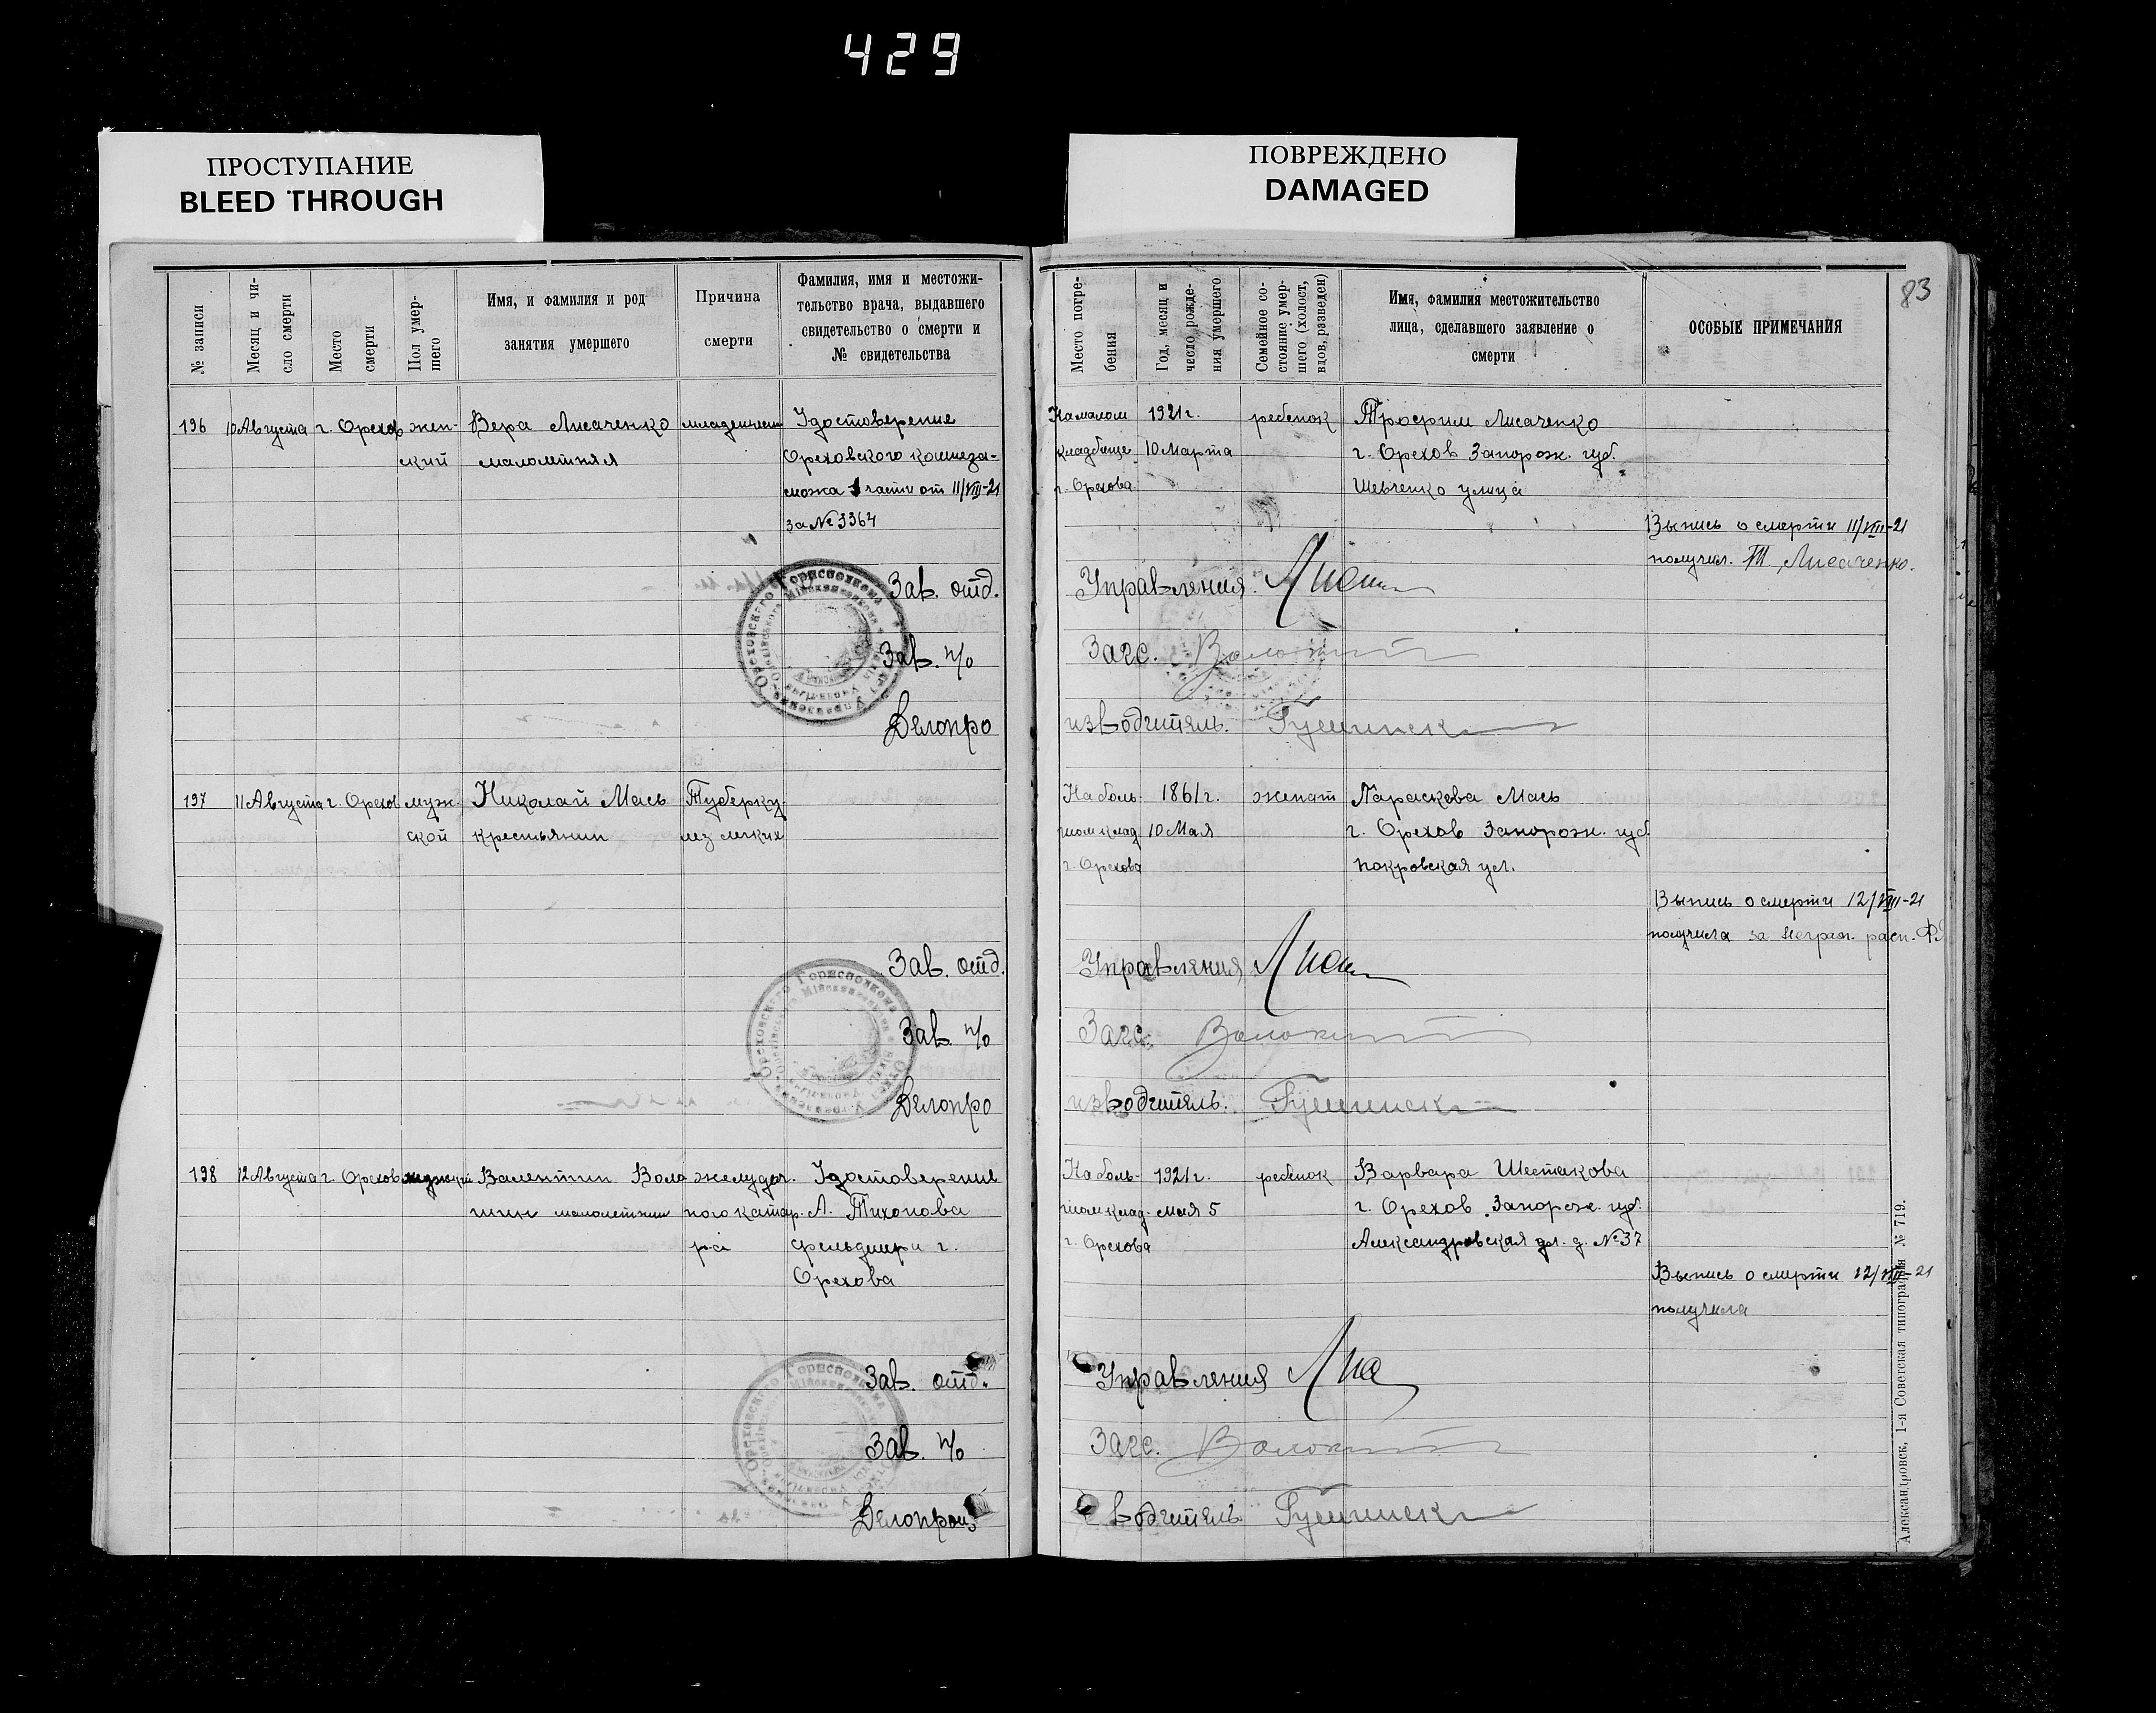 429
ПРОСТУПАНИЕ
BLEED THROUGH
ПОВРЕЖДЕНО
DAMAGED
№ записи
Месяц и чи-
сло смерти
Место
смерти
Пол умер-
шего
Имя, и фамилия и род
занятия умершего
Причина
смерти
Фамилия, имя и местожи-
тельство врача, выдавшего
свидетельство о смерти и
№ свидетельства
196 10 Августа г. Орехов жен- Вера Лисаченко
ский малолетняя
Удостоверение
Ореховского комнеза-
можа 1 части от 11/VIII-21
за № 3364
Зав. отд.
Зав. п/о
Делопро
197 11 Августа г. Орехов муж- Николай Мась Туберку-
ской крестьянин лез легких
Зав. отд.
Зав. п/о
Делопро
198 12 Августа г. Орехов мужской Валентин Воло желудоч. Удостоверение
шин малолетний ного катар- А. Тихонова
ра фельдшера г.
Орехова
Зав. отд.
Зав. п/о
Делопроиз
83
Место погре-
бения
Год, месяц и
число рожде-
ния умершего
Семейное со-
стояние умер-
шего (холост,
вдов, разведен)
Имя, фамилия местожительство
лица, сделавшего заявление о
смерти
ОСОБЫЕ ПРИМЕЧАНИЯ
На малом 1921 г. ребенок Трофим Лисаченко
кладбище 10 Марта г. Орехов Запорож. губ.
г. Орехова Шевченко улица
Выпись о смерти 11/VIII-21
получил. Т. Лисаченко.
Управления
Загс.
изводитель.
На боль- 1861 г. женат Параскева Мась
шом клад. 10 Мая г. Орехов Запорож. губ.
г. Орехова покровская ул.
Выпись о смерти 12/VIII-21
получила за неграм. расп.
Управления
Загс.
изводитель.
На боль- 1921 г. ребенок Варвара Шестакова
шом клад. мая 5 г. Орехов Запорож. губ.
г. Орехова Александровская ул. д. № 37
Выпись о смерти 12/VIII-21
получила
Управления
Загс.
водитель
Александровск, 1-я Советская типография № 719.